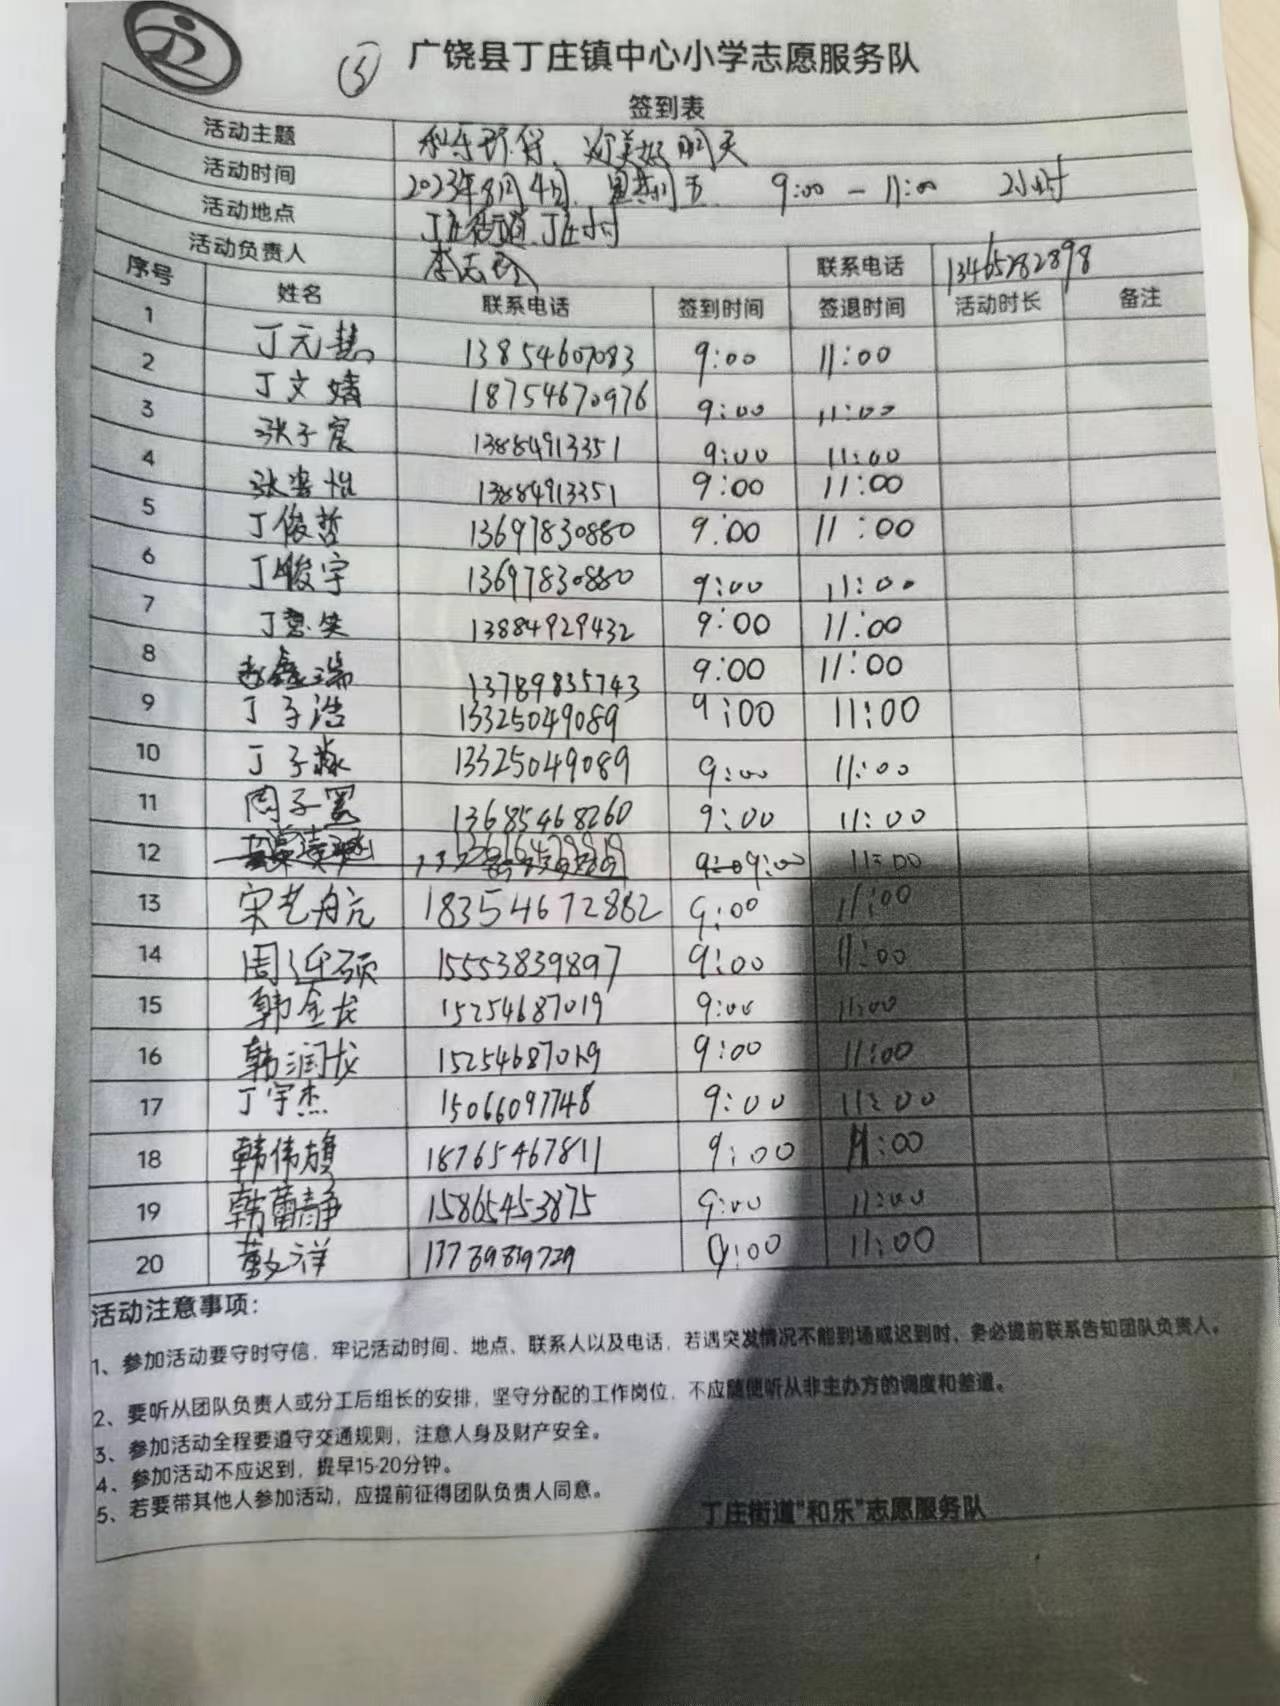 ⑤ 广饶县丁庄镇中心小学志愿服务队
签到表
活动主题
活动时间 2023年8月4日. 星期五. 9:00 — 11:00 2小时
活动地点
活动负责人 李志 联系电话 13465282898
序号 姓名 联系电话 签到时间 签退时间 活动时长 备注
1 丁元慧 13854607083 9:00 11:00
2 丁文婧 18754670976 9:00 11:00
3 张子宸 13884913351 9:00 11:00
4 张 怡 13884913351 9:00 11:00
5 丁俊哲 13697830880 9:00 11:00
6 丁峻宇 13697830880 9:00 11:00
7 丁慧笑 13884929432 9:00 11:00
8 赵鑫瑞 13789835743 9:00 11:00
9 丁子浩 13325049089 9:00 11:00
10 丁子淼 13325049089 9:00 11:00
11 周子 13685468260 9:00 11:00
12 9:00 11:00
13 宋艺舟亢 18354672882 9:00 11:00
14 周延硕 15553839897 9:00 11:00
15 韩金龙 15254687019 9:00 11:00
16 韩润龙 15254687019 9:00 11:00
17 丁宇杰 15066097748 9:00 11:00
18 韩伟旗 18765467811 9:00 11:00
19 韩蕾静 15865453875 9:00 11:00
20 9:00 11:00
活动注意事项：
1、参加活动要守时守信，牢记活动时间、地点、联系人以及电话，若遇突发情况不能到场或迟到时，务必提前联系告知团队负责人。
2、要听从团队负责人或分工后组长的安排，坚守分配的工作岗位，不应随便听从非主办方的调度和差遣。
3、参加活动全程要遵守交通规则，注意人身及财产安全。
4、参加活动不应迟到，提早15-20分钟。
5、若要带其他人参加活动，应提前征得团队负责人同意。
丁庄街道"和乐"志愿服务队